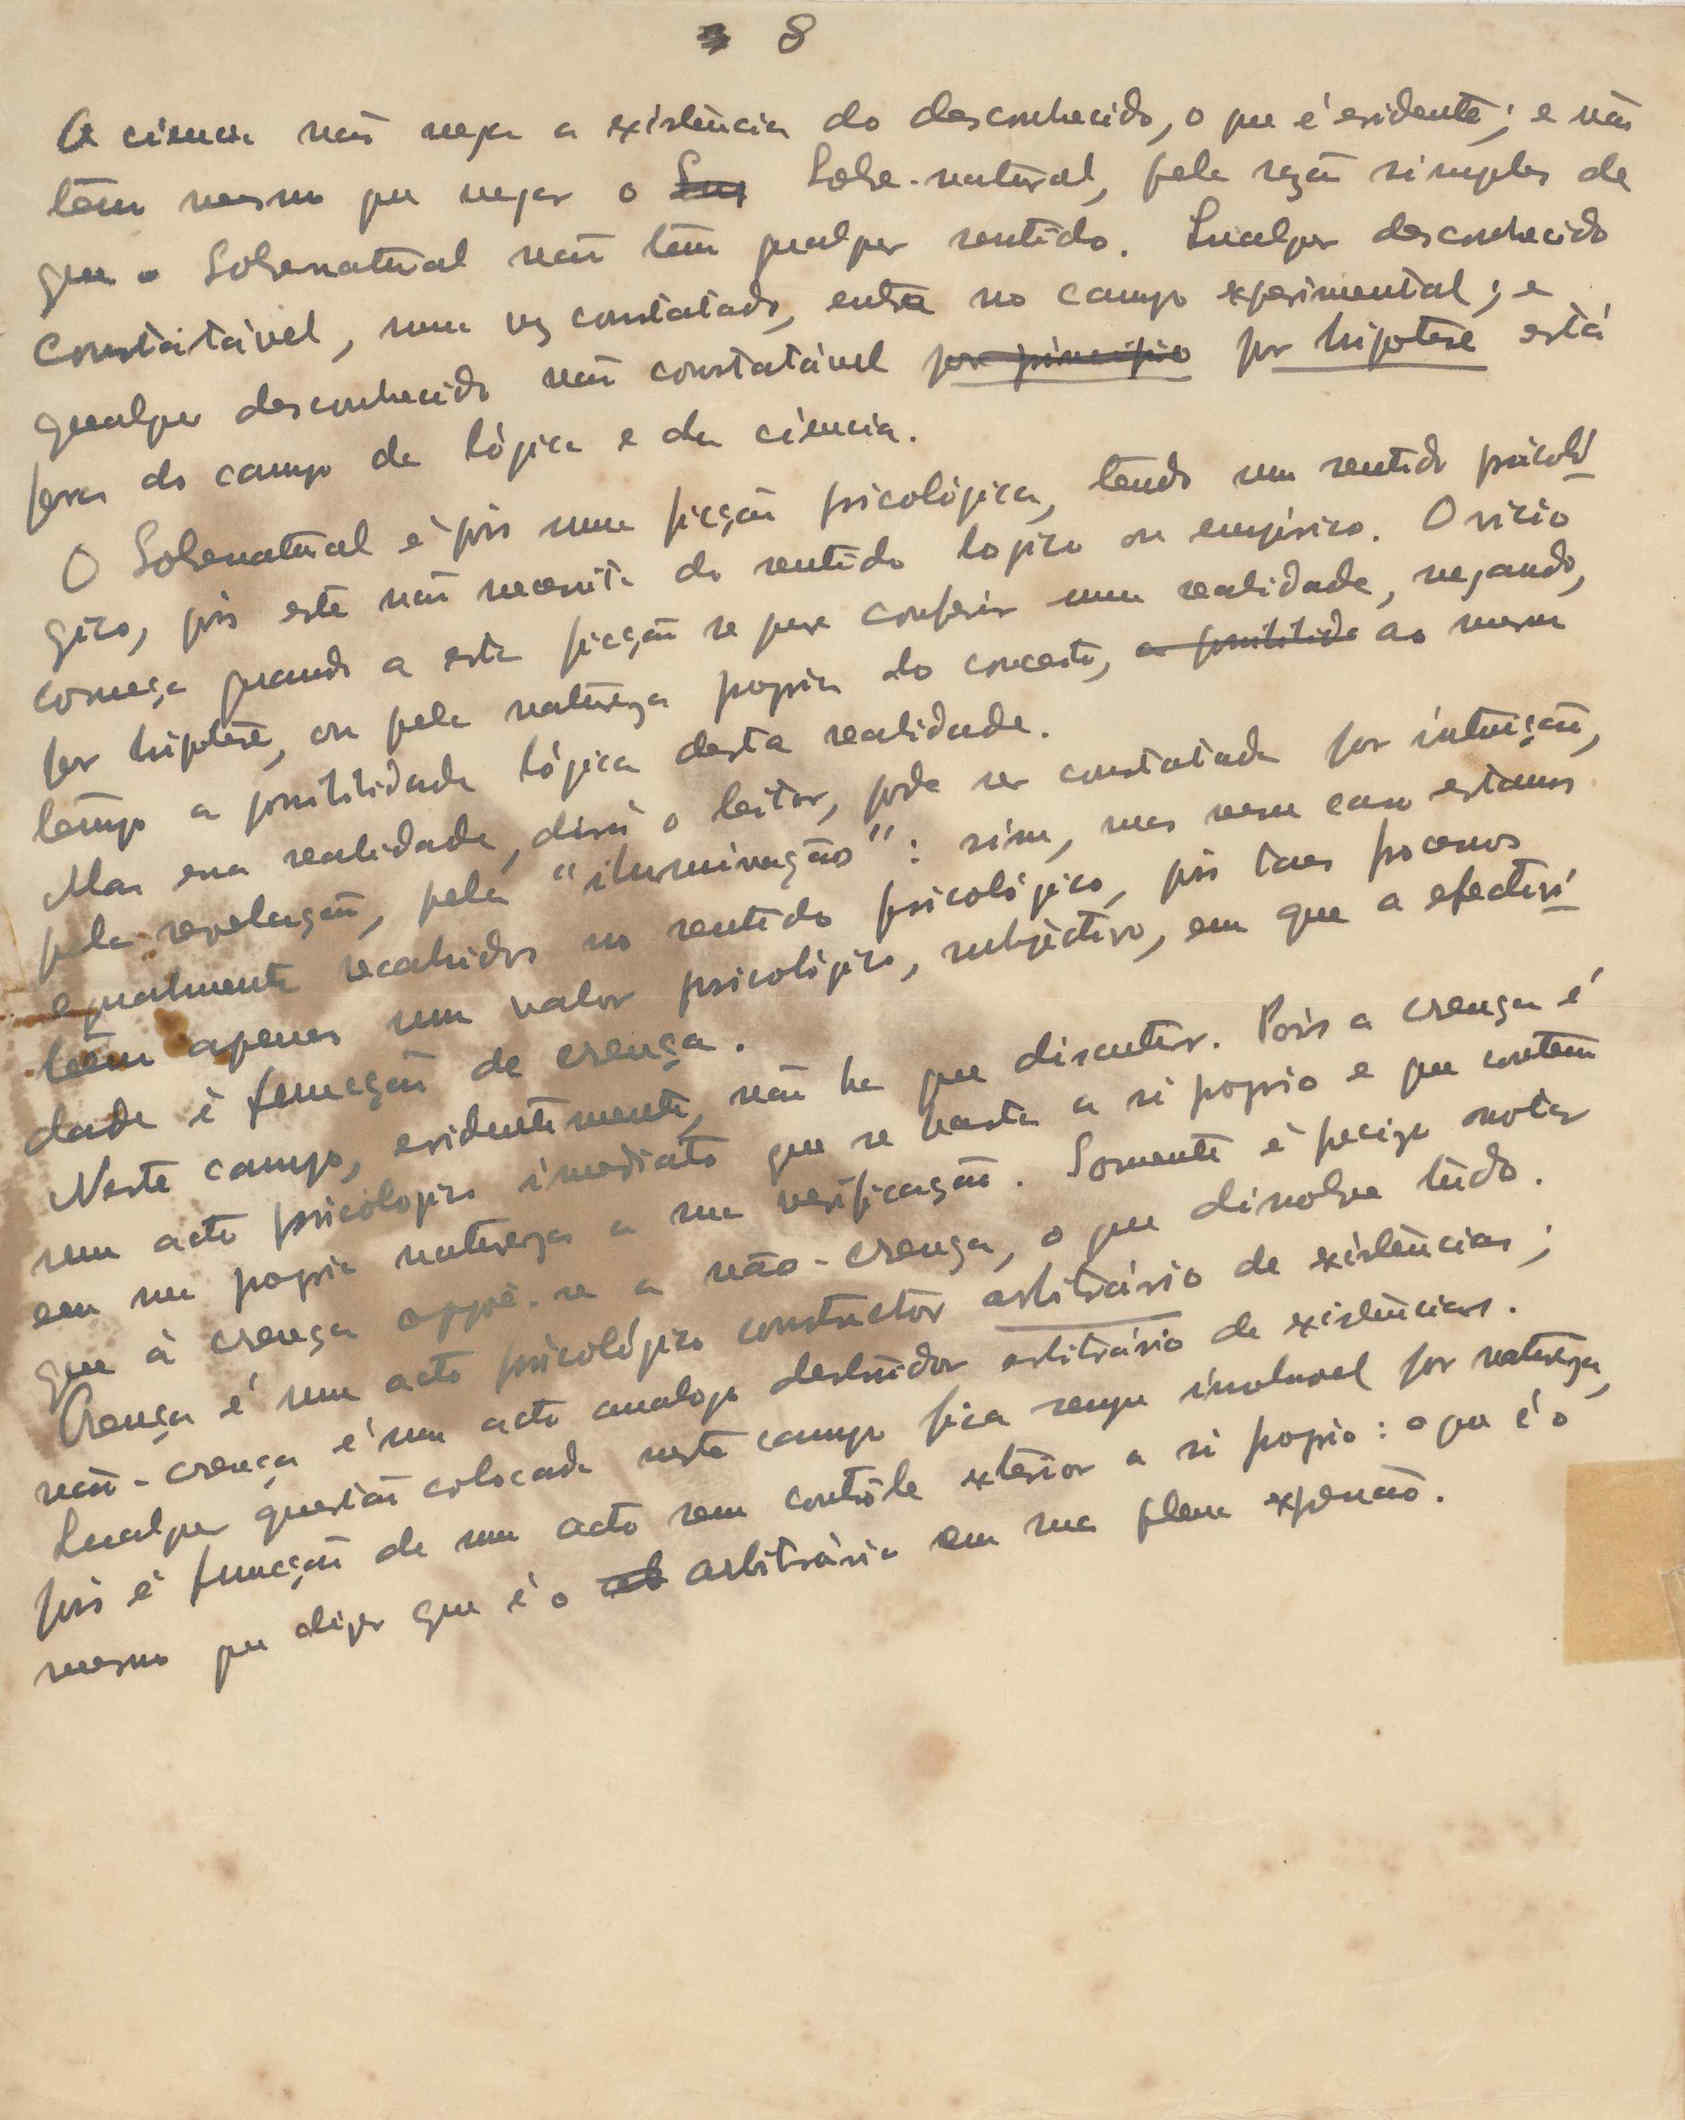 8
A ciencia não nega a existência do desconhecido, o que é evidente; e não
têm mesmo que negar o Sobre-natural, pela razão simples de
que o Sobrenatural não têm qualquer sentido. Qualquer desconhecido
constatável, uma vez constatado, entra no campo experimental; e
qualquer desconhecido não constatável por principio por hipotese está
fora do campo da lógica e da ciencia.
O Sobrenatural é pois uma ficção psicológica, tendo um sentido psicoló
gico, pois este não necessita do sentido logico ou empirico. O vicio
começa quando a esta ficção se quer conferir uma realidade, negando,
por hipotese, ou pela natureza propria do conceito, a possibilida ao mesmo
tempo a possibilidade lógica desta realidade.
Mas essa realidade, dirá o leitor, pode ser constatada por intuição,
pela revelação, pela "iluminação": sim, mas nesse caso estamos
egualmente recahidos no sentido psicológico, pois taes processos
têem apenas um valor psicológico, subjectivo, em que a efectivi
dade é funcção de crença.
Neste campo, evidentemente, não ha que discutir. Pois a crença é
um acto psicologico imediato que se basta a si proprio e que contem
em sua propria natureza a sua verificação. Somente é preciso notar
que à crença oppõe-se a não-crença, o que disolve tudo.
Crença é um acto psicológico constructor arbitrário de existências;
não-crença é um acto analogo destruidor arbitrário de existências.
Qualquer questão colocada neste campo fica sempre insoluvel por natureza,
pois é funcção de um acto sem contrôle exterior a si proprio: o que é o
mesmo que dizer que é o arb arbitrário em sua plena expressão.